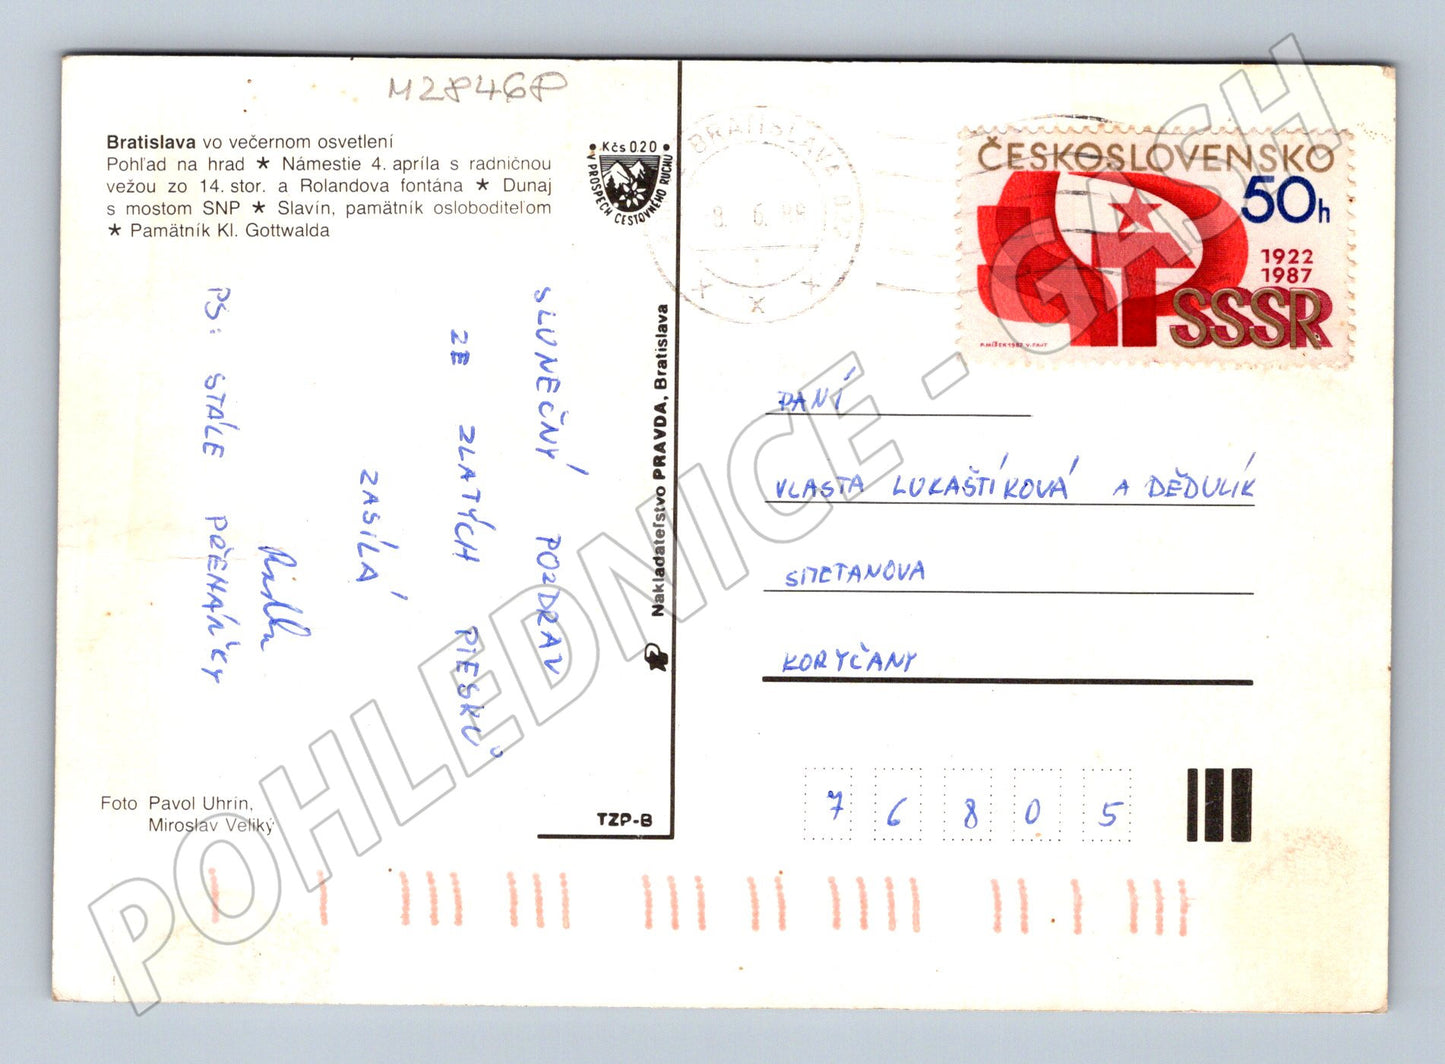 M2846P
Bratislava vo večernom osvetlení
Pohľad na hrad ★ Námestie 4. apríla s radničnou
vežou zo 14. stor. a Rolandova fontána ★ Dunaj
s mostom SNP ★ Slavín, pamätník osloboditeľom
★ Pamätník Kl. Gottwalda
• Kčs 0.20 •
V PROSPECH CESTOVNÉHO RUCHU
SLUNEČNÝ POZDRAV
ZE ZLATÝCH PIESKŮ
ZASÍLÁ
PS: STÁLE PŘEHÁŇKY
Foto Pavol Uhrin,
Miroslav Veliký
Nakladateľstvo PRAVDA, Bratislava
TZP-B
BRATISLAVA
ČESKOSLOVENSKO
50h
1922
1987
SSSR
PANÍ
VLASTA LUKAŠTÍKOVÁ A DĚDULÍK
SMETANOVA
KORYČANY
7 6 8 0 5
POHLEDNICE - GASH